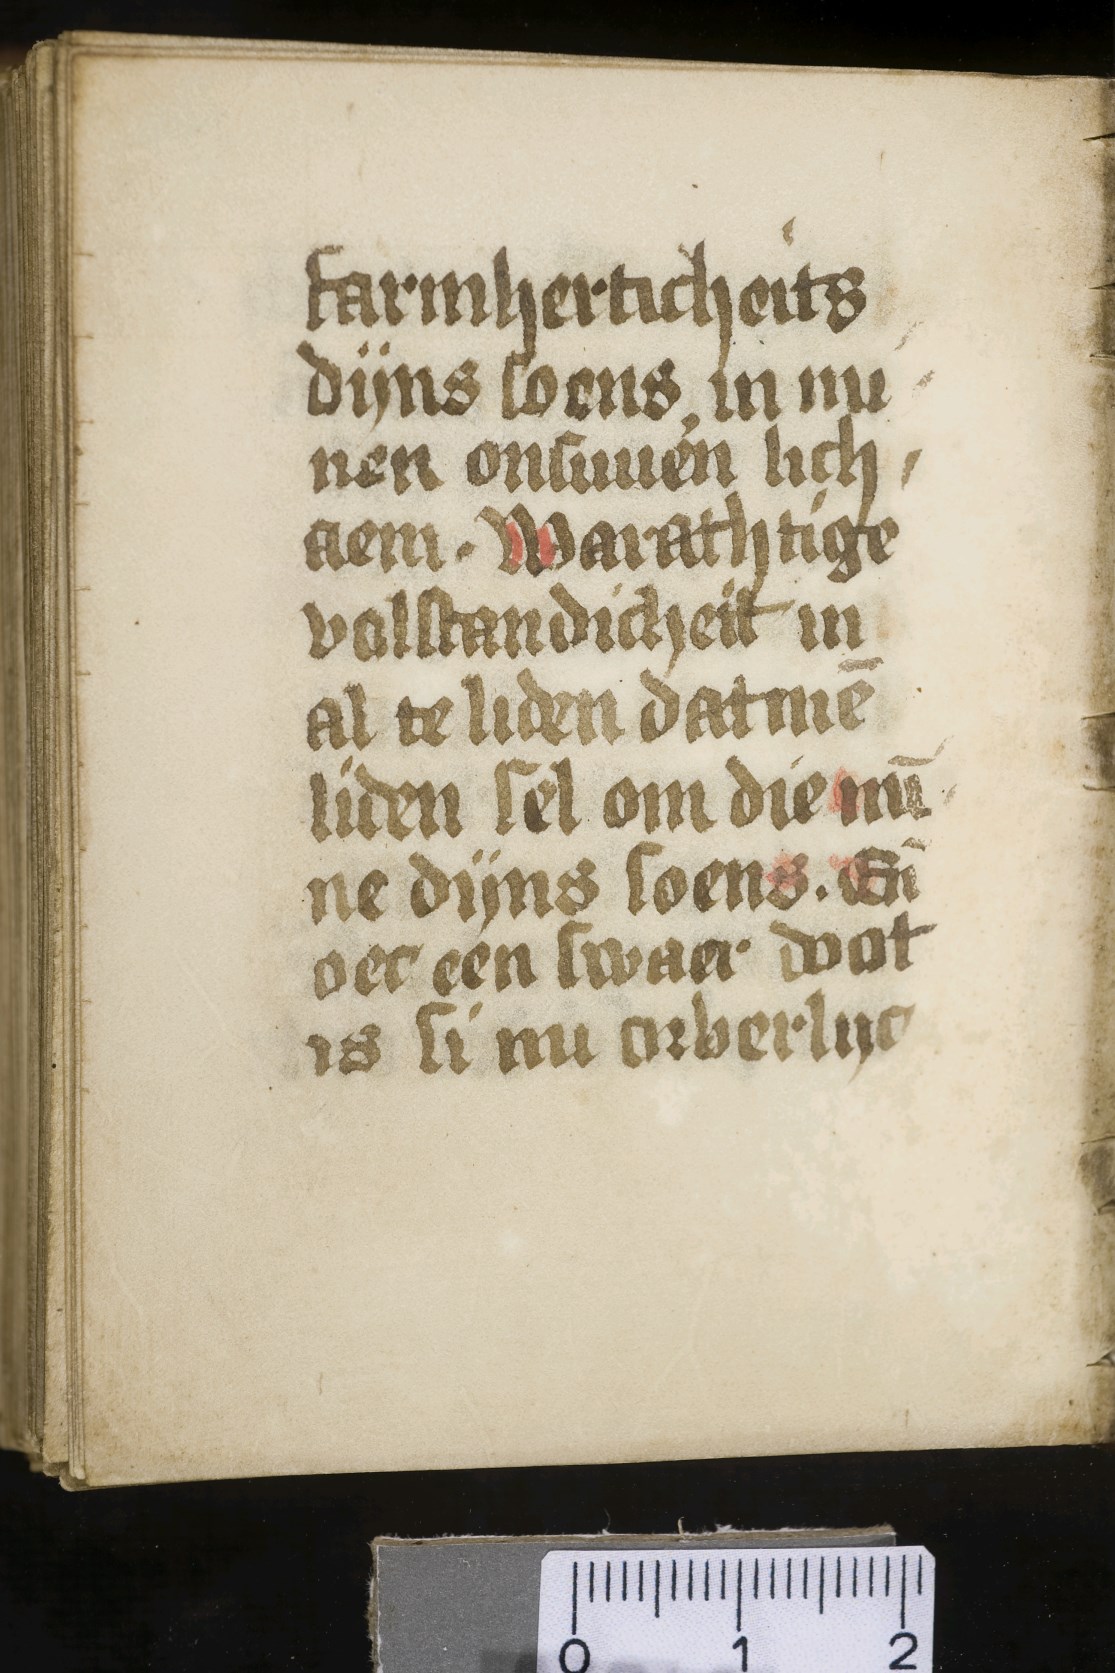 farmherticheits
dijns soens, in mi
nen onsuuen lich
aem. Warathtige
volstandicheit in
al te liden datmē
liden sel om die mī
ne dijns soens. En̄
oec een swaer wot
is si nu orberlijc
0 1 2